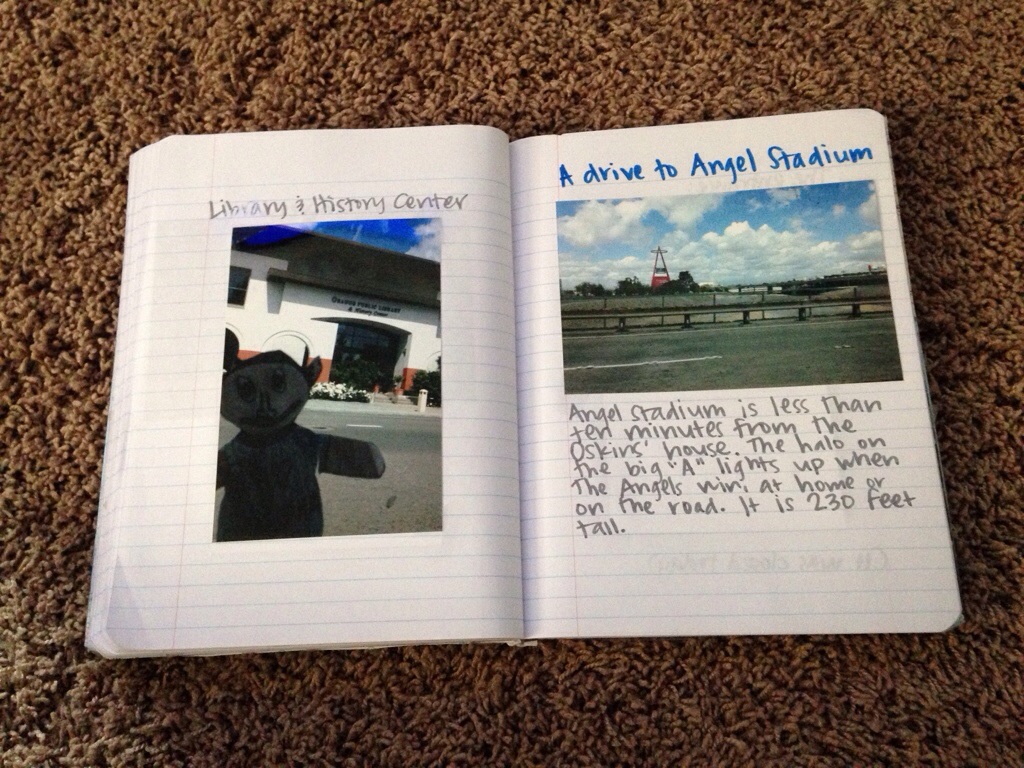 Library & History Center
ORANGE PUBLIC LIBRARY
& History Center
A drive to Angel Stadium
Angel Stadium is less than
ten minutes from the
Oskins' house. The halo on
the big "A" lights up when
the Angels win: at home or
on the road. It is 230 feet
tall.